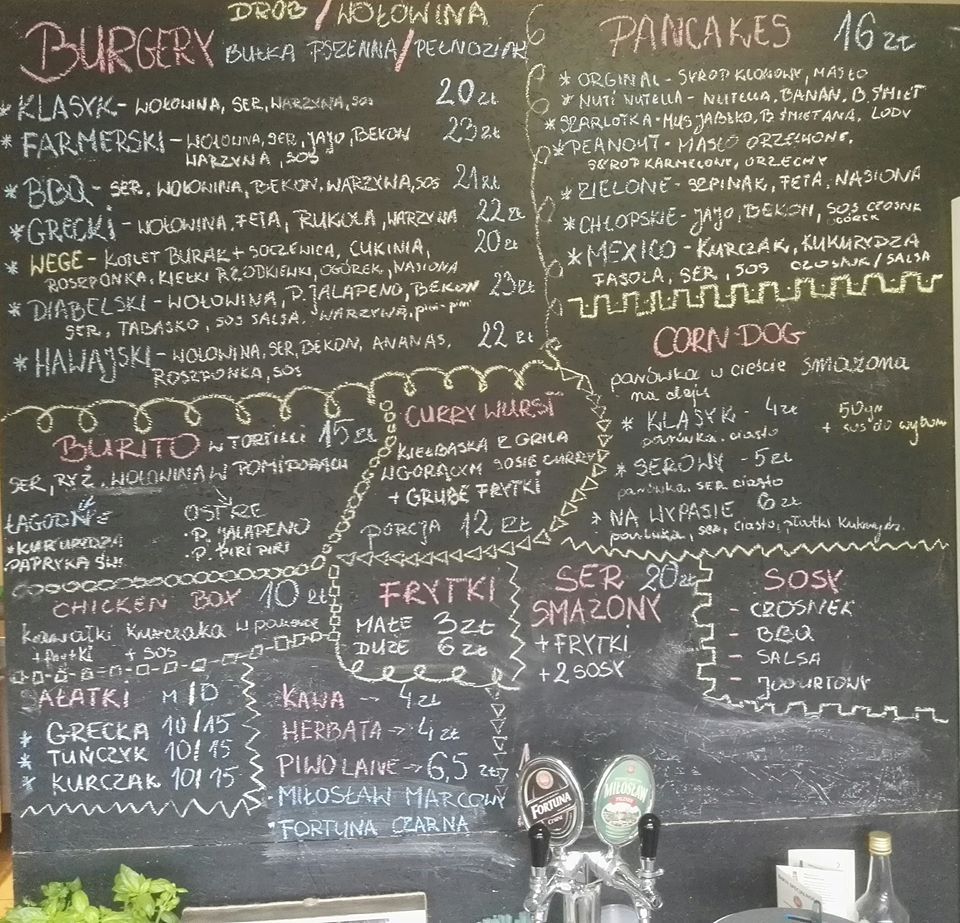 DRÓB / WOŁOWINA
BURGERY BUŁKA PSZENNA / PEŁNOZIAR
* KLASYK - WOŁOWINA, SER, WARZYWA, SOS 20 ZŁ
* FARMERSKI - WOŁOWINA, SER, JAJO, BEKON 23 ZŁ
WARZYWA, SOS
* BBQ - SER, WOŁOWINA, BEKON, WARZYWA, SOS 21 ZŁ
* GRECKI - WOŁOWINA, FETA, RUKOLA, WARZYWA 22 ZŁ
* WEGE - KOTLET BURAK + SOCZEWICA, CUKINIA, 20 ZŁ
ROSZPONKA, KIEŁKI RZODKIEWKI, OGÓREK, NASIONA
* DIABELSKI - WOŁOWINA, P. JALAPENO, BEKON 23 ZŁ
SER, TABASKO, SOS SALSA, WARZYWA, piri-piri
* HAWAJSKI - WOŁOWINA, SER, BEKON, ANANAS, 22 ZŁ
ROSZPONKA, SOS
PANCAKES 16 ZŁ
* ORGINAL - SYROP KLONOWY, MASŁO
* NUTI NUTELLA - NUTELLA, BANAN, B. ŚMIET
* SZARLOTKA - MUS JABŁKO, B ŚMIETANA, LODY
* PEANOUT - MASŁO ORZECHOWE,
SYROP KARMELOWE, ORZECHY
* ZIELONE - SZPINAK, FETA, NASIONA
* CHŁOPSKIE - JAJO, BEKON, SOS CZOSNK
OGÓREK
* MEXICO - KURCZAK, KUKURYDZA
FASOLA, SER, SOS CZOSNK / SALSA
CORN-DOG
parówka w cieście smażona
na oleju
* KLASYK - 4 zł
parówka, ciasto
+ sos do wyboru
* SEROWY - 5 zł
parówka, ser, ciasto
* NA WYPASIE 6 zł
parówka, ser, ciasto, płatki kukurydz.
BURITO W TORTILLI 15 ZŁ
SER, RYŻ, WOŁOWINA W POMIDORACH
ŁAGODNE
* KUKURYDZA
PAPRYKA ŚW.
OSTRE
. P. JALAPENO
. P. PIRI PIRI
CURRYWURST
KIEŁBASKA Z GRILA
W GORĄCYM SOSIE CURRY
+ GRUBE FRYTKI
PORCJA 12 ZŁ
CHICKEN BOX 10 ZŁ
kawałki kurczaka w panierce
+ frytki + sos
FRYTKI
MAŁE 3 ZŁ
DUŻE 6 ZŁ
SER 20 zł
SMAŻONY
+ FRYTKI
+ 2 SOSY
SOSY
- CZOSNEK
- BBQ
- SALSA
- JOGURTOWY
AŁATKI M / D
* GRECKA 10 / 15
* TUŃCZYK 10 / 15
* KURCZAK 10 / 15
KAWA -- 4 zł
HERBATA -> 4 zł
PIWO LANE -> 6,5 zł
- MIŁOSŁAW MARCOWY
- FORTUNA CZARNA
FORTUNA
CZARNE
MIŁOSŁAW
PILZNER